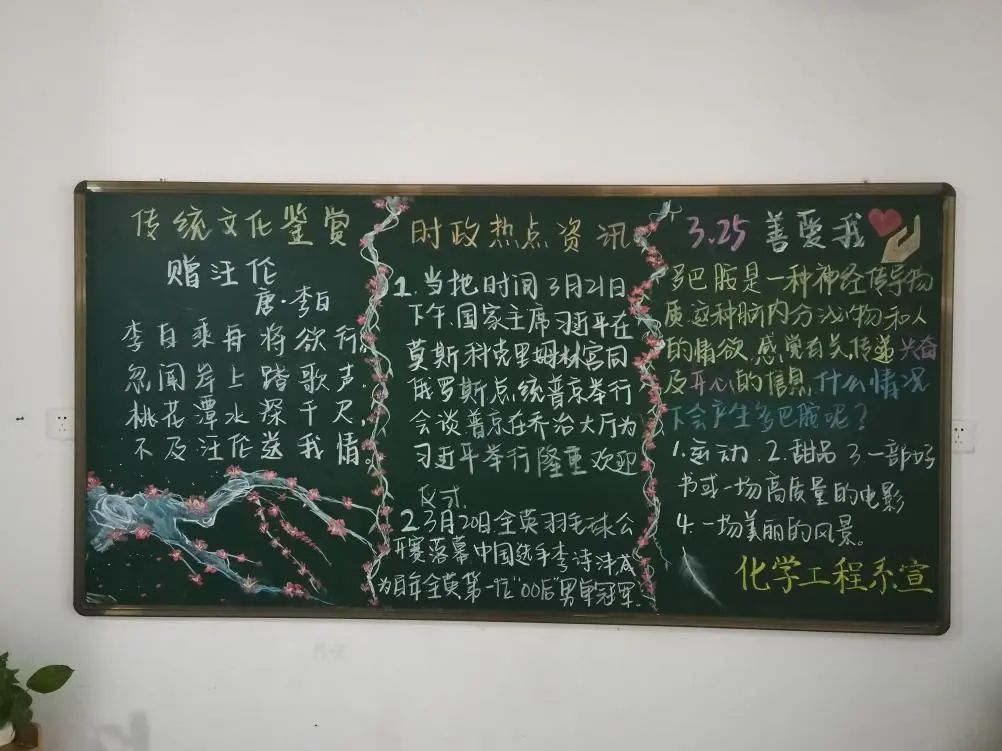 传统文化鉴赏
赠汪伦
唐·李白
李白乘舟将欲行,
忽闻岸上踏歌声,
桃花潭水深千尺,
不及汪伦送我情。
时政热点资讯
1.当地时间3月21日
下午,国家主席习近平在
莫斯科克里姆林宫同
俄罗斯总统普京举行
会谈普京在乔治大厅为
习近平举行隆重欢迎
仪式.
2.3月20日全英羽毛球公
开赛落幕,中国选手李诗沣成
为百年全英第一位“00后”男单冠军.
3.25 善爱我
多巴胺是一种神经传导物
质,这种脑内分泌物和人
的情欲、感觉有关,传递兴奋
及开心的信息,什么情况
下会产生多巴胺呢?
1.运动 2.甜品 3.一部好
书或一场高质量的电影
4.一场美丽的风景。
化学工程系宣